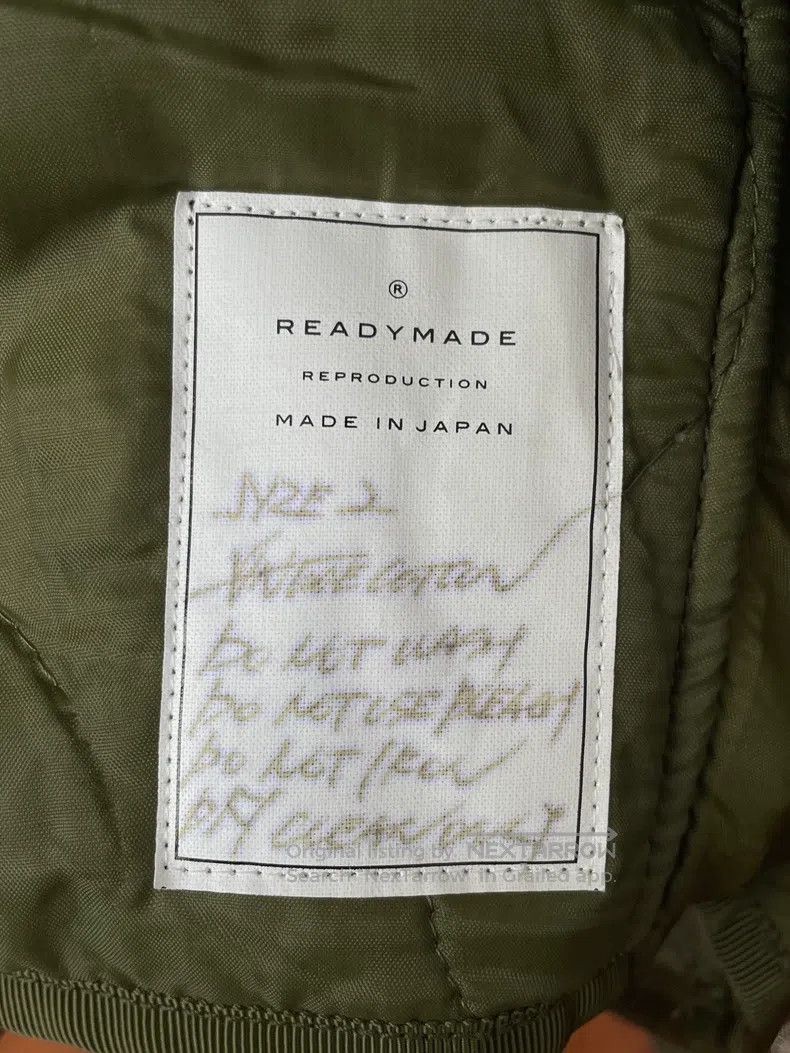 ®
READYMADE
REPRODUCTION
MADE IN JAPAN
SIZE 2
VINTAGE COTTON
DO NOT WASH
DO NOT USE BLEACH
DO NOT IRON
DRY CLEAN ONLY
Original listing by NEXTARROW
Search "NexTarrow" in Grailed app.